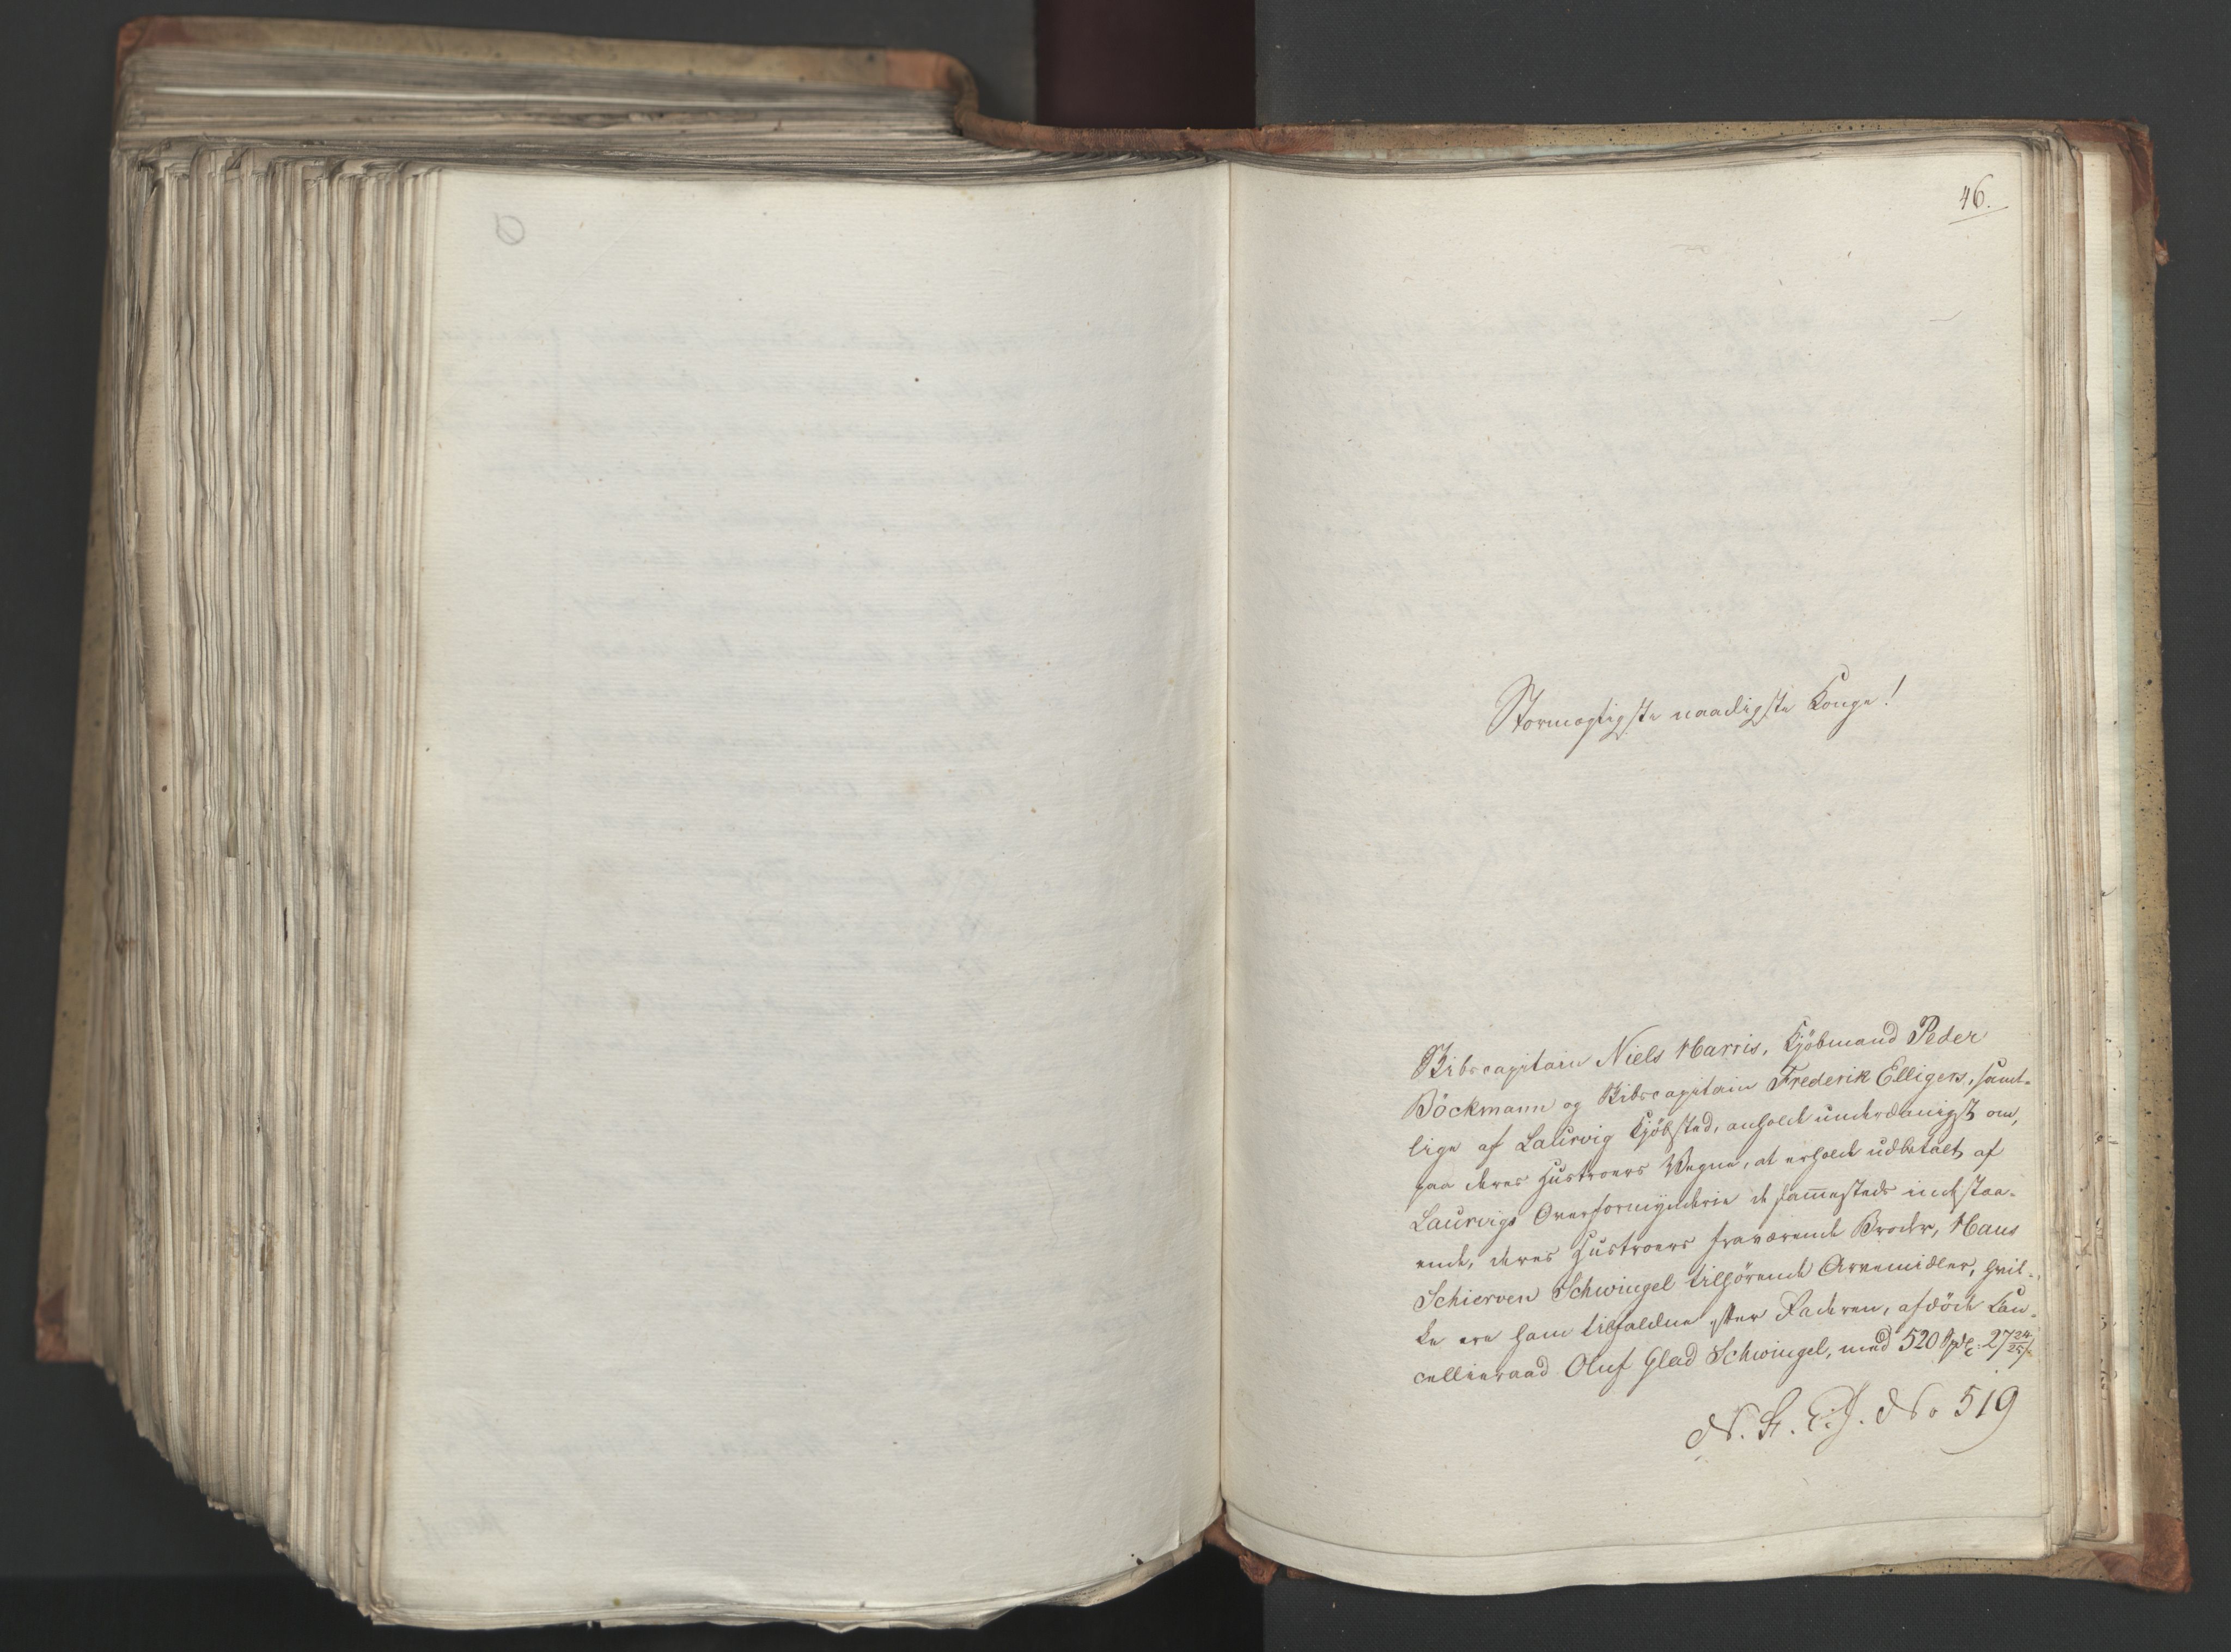 46.
Stormægtigste naadigste Konge!
Skibscapitain Niels Harris, Kjøbmand Peder
Böckmann og Skibscapitain Frederik Elligers, samt-
lige af Laurvig Kjøbstad, anholde underdanigst om,
paa deres Hustroers Vegne, at erholde udbetalt af
Laurvigs Overformynderie de sammesteds indestaa-
ende, deres Hustroers fraværende Broder, Hans
Schierven Schwingel tilhørende Arvemidler, hvil-
ke ere ham tilfaldne efter Faderen, afdøde Can-
cellieraad Oluf Glad Schwingel, med 520 Spd. 27 24/25 s.
N. S. E. J. No 519